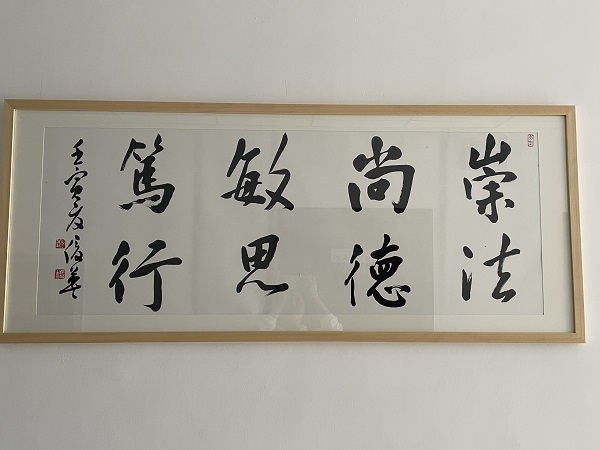 崇法
尚德
敏思
篤行
壬寅夏俊英